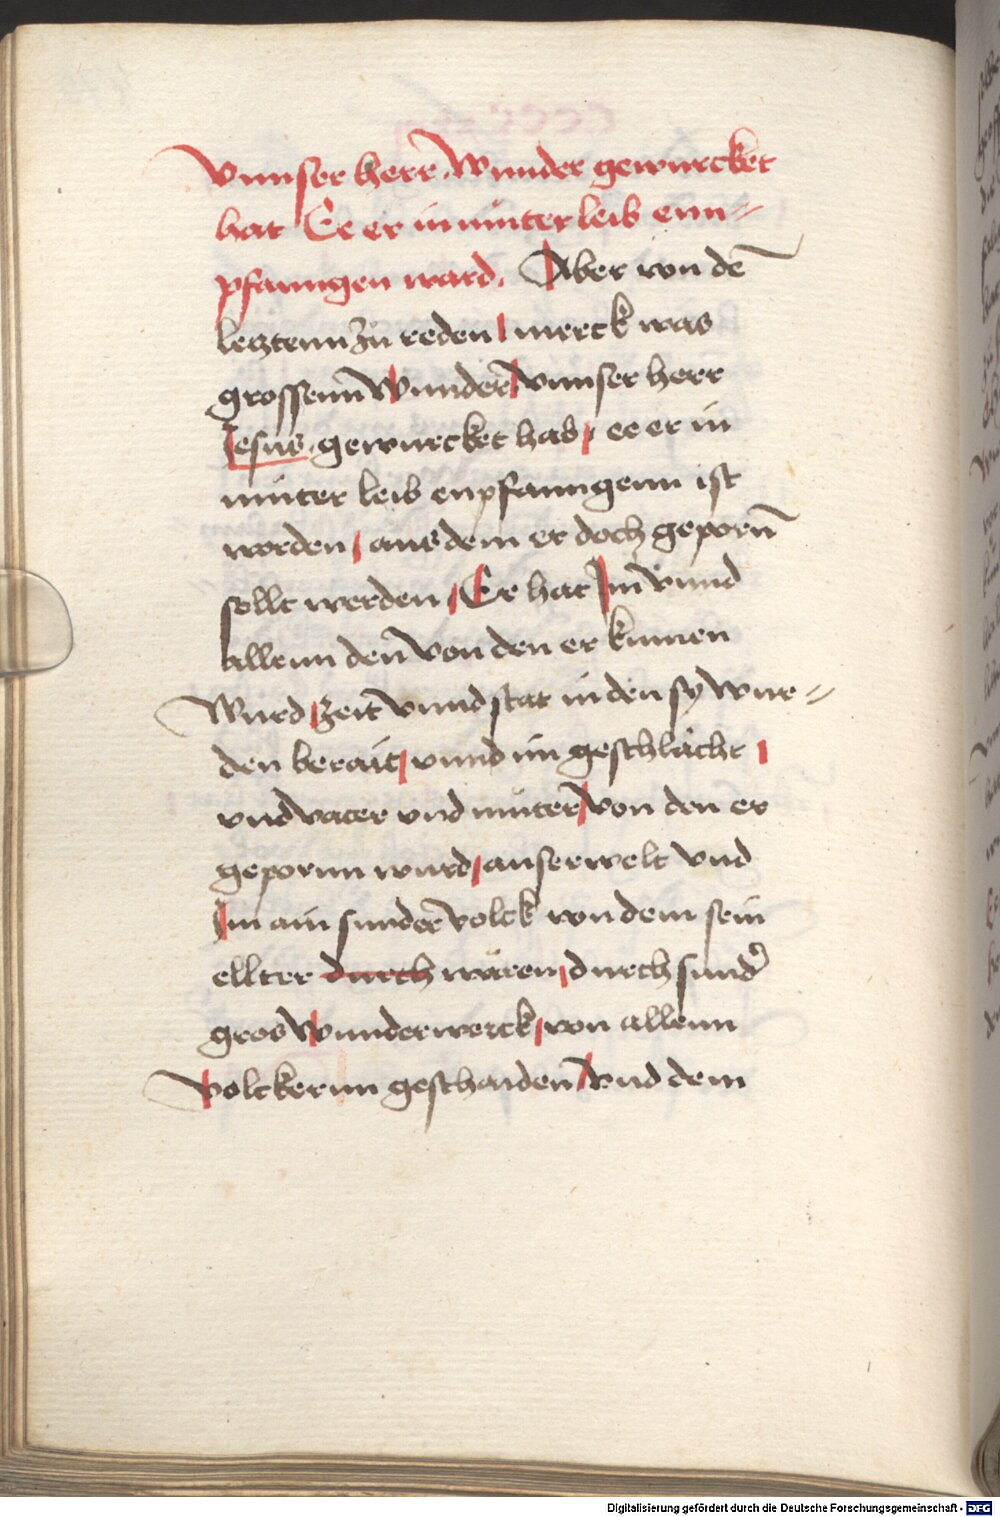 vnnser herr wunder gewurcket
hat Ee er in muter leib enn-
pfanngen ward. Aber von dē
leztenn zu reden / merck was
grossenn wunder vnnser herr
Jesus gewurcket hab / ee er in
muter leib enpfanngenn ist
worden / aus dem er doch geporñ
sollt werden / Er hat im vnnd
allenn den von den er kumen
wurd / zeit vnnd stat in den sy wur-
den berait / vnnd im geschlächt /
vnd vater vnd muter / von den er
gepornn wurd / auserwelt vnd
Im ain sunder volck von dem sein
ellter durch wären / durch sund
gros wunderwerck / von allenn
volckernn geschaiden / vnd dem
Digitalisierung gefördert durch die Deutsche Forschungsgemeinschaft - DFG